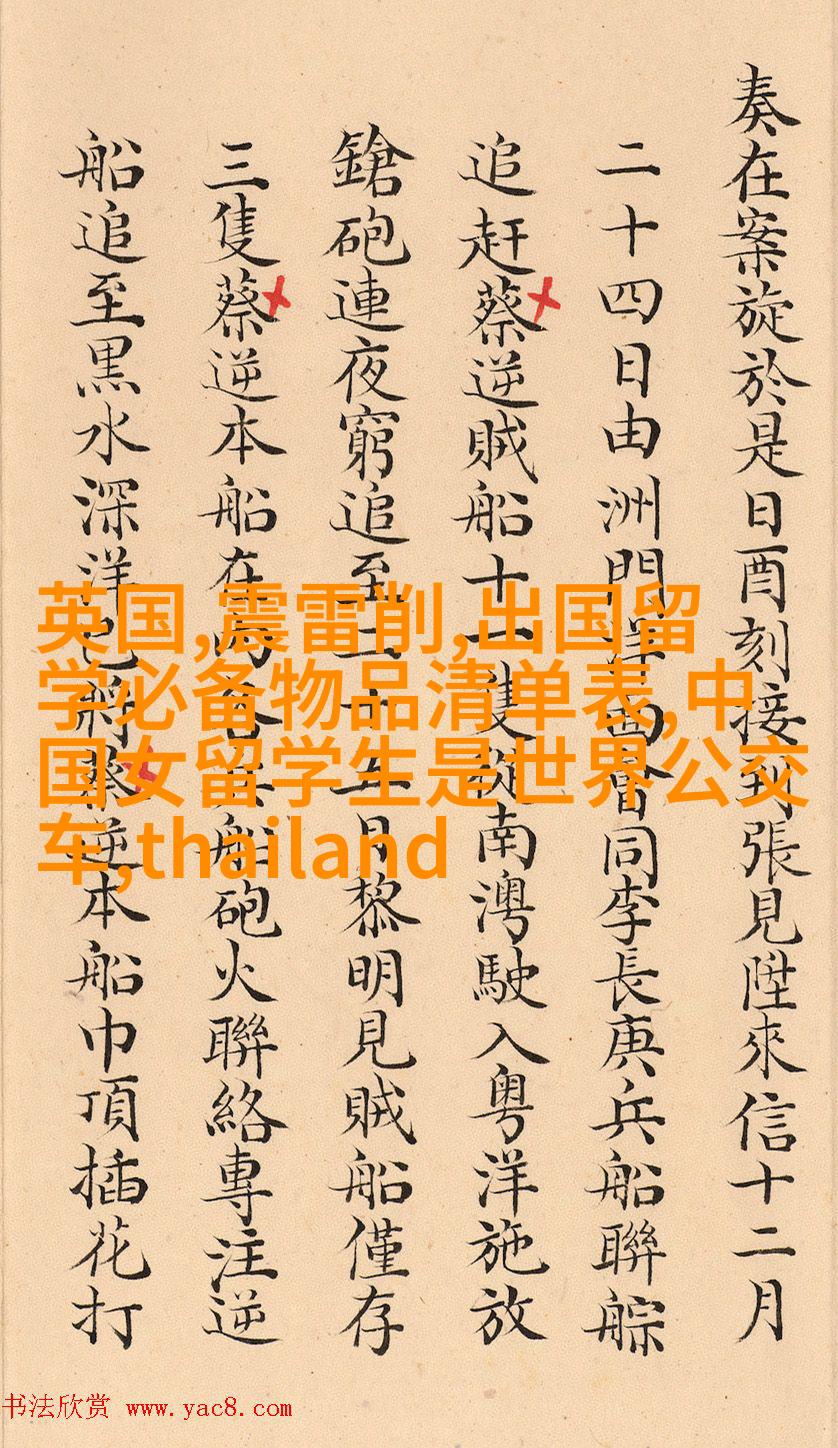 奏在案旋於是日酉刻接到張見陞來信十二月
二十四日由洲門洋面會同李長庚兵船聯䑸
追赶蔡逆賊船十一隻從南澳駛入粤洋施放
鎗砲連夜窮追至二十五日黎明見賊船僅存
三隻蔡逆本船在內各兵船砲火聯絡專注逆
船追至黒水深洋已將蔡逆本船巾頂插花打
英国,震雷削,出国留
学必备物品清单表,中
国女留学生是世界公交
车,thailand
书法欣赏 www.yac8.com